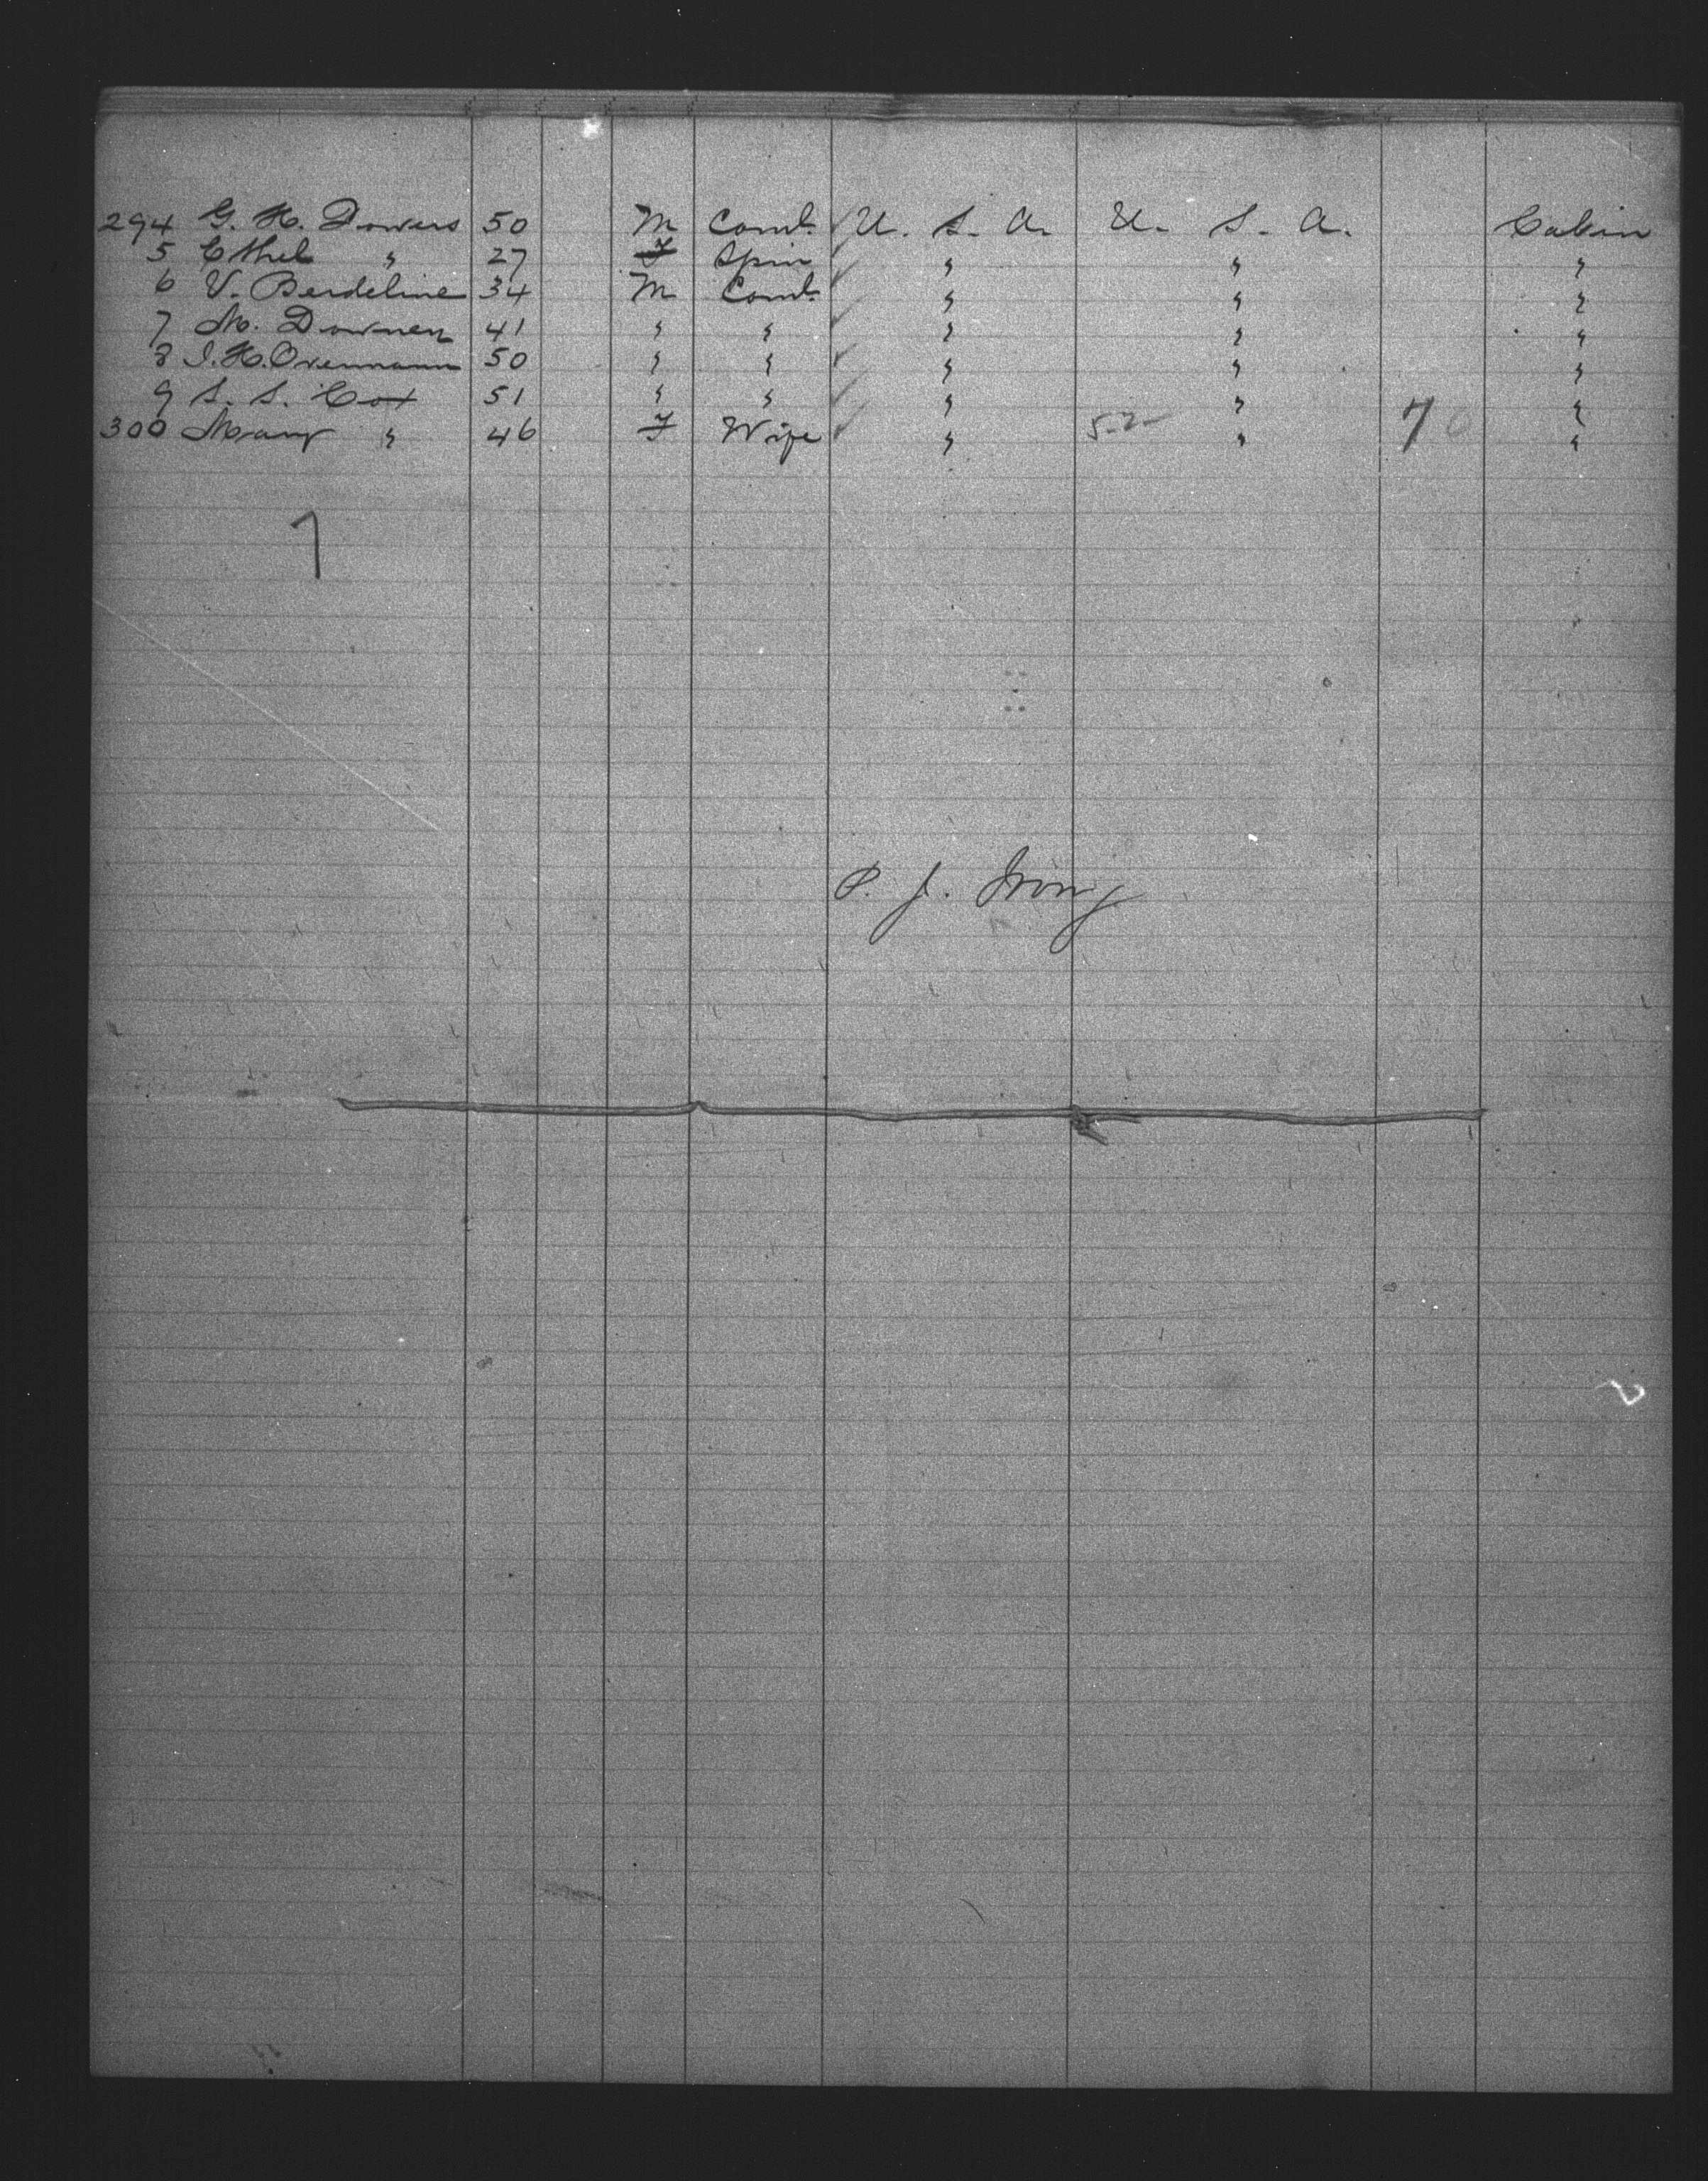 294 G. H. Dowers 50 M Coml. U. S. A. U. S. A. Cabin
5 Ethel " 27 F Spin " " "
6 V. Berdeline 34 M Coml. " " "
7 M. Downen 41 " " " " "
8 J. H. Overmann 50 " " " " "
9 S. S. Cox 51 " " " " "
300 Mary " 46 F Wife " 52 " 70 "
7
P. J.